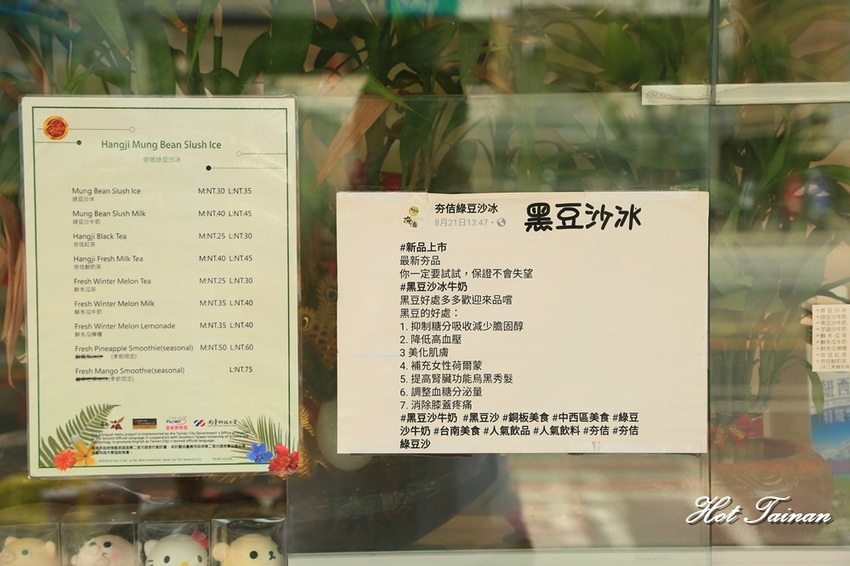 Hangji Mung Bean Slush Ice
夯佶綠豆沙冰
Mung Bean Slush Ice M:NT.30 L:NT.35
綠豆沙冰
Mung Bean Slush Milk M:NT.40 L:NT.45
綠豆沙牛奶
Hangji Black Tea M:NT.25 L:NT.30
夯佶紅茶
Hangji Fresh Milk Tea M:NT.40 L:NT.45
夯佶鮮奶茶
Fresh Winter Melon Tea M:NT.25 L:NT.30
鮮冬瓜茶
Fresh Winter Melon Milk M:NT.35 L:NT.40
鮮冬瓜牛奶
Fresh Winter Melon Lemonade M:NT.35 L:NT.40
鮮冬瓜檸檬
Fresh Pineapple Smoothie(seasonal) M:NT.50 L:NT.60
(季節限定)
Fresh Mango Smoothie(seasonal) L:NT.75
(季節限定)
南臺科技大學
夯佶綠豆沙冰
8月21日13:47
黑豆沙冰
#新品上市
最新夯品
你一定要試試，保證不會失望
#黑豆沙冰牛奶
黑豆好處多多歡迎來品嚐
黑豆的好處：
1. 抑制糖分吸收減少膽固醇
2. 降低高血壓
3 美化肌膚
4. 補充女性荷爾蒙
5. 提高腎臟功能烏黑秀髮
6. 調整血糖分泌量
7. 消除膝蓋疼痛
#黑豆沙牛奶 #黑豆沙 #銅板美食 #中西區美食 #綠豆
沙牛奶 #台南美食 #人氣飲品 #人氣飲料 #夯佶 #夯佶
綠豆沙
Hot Tainan